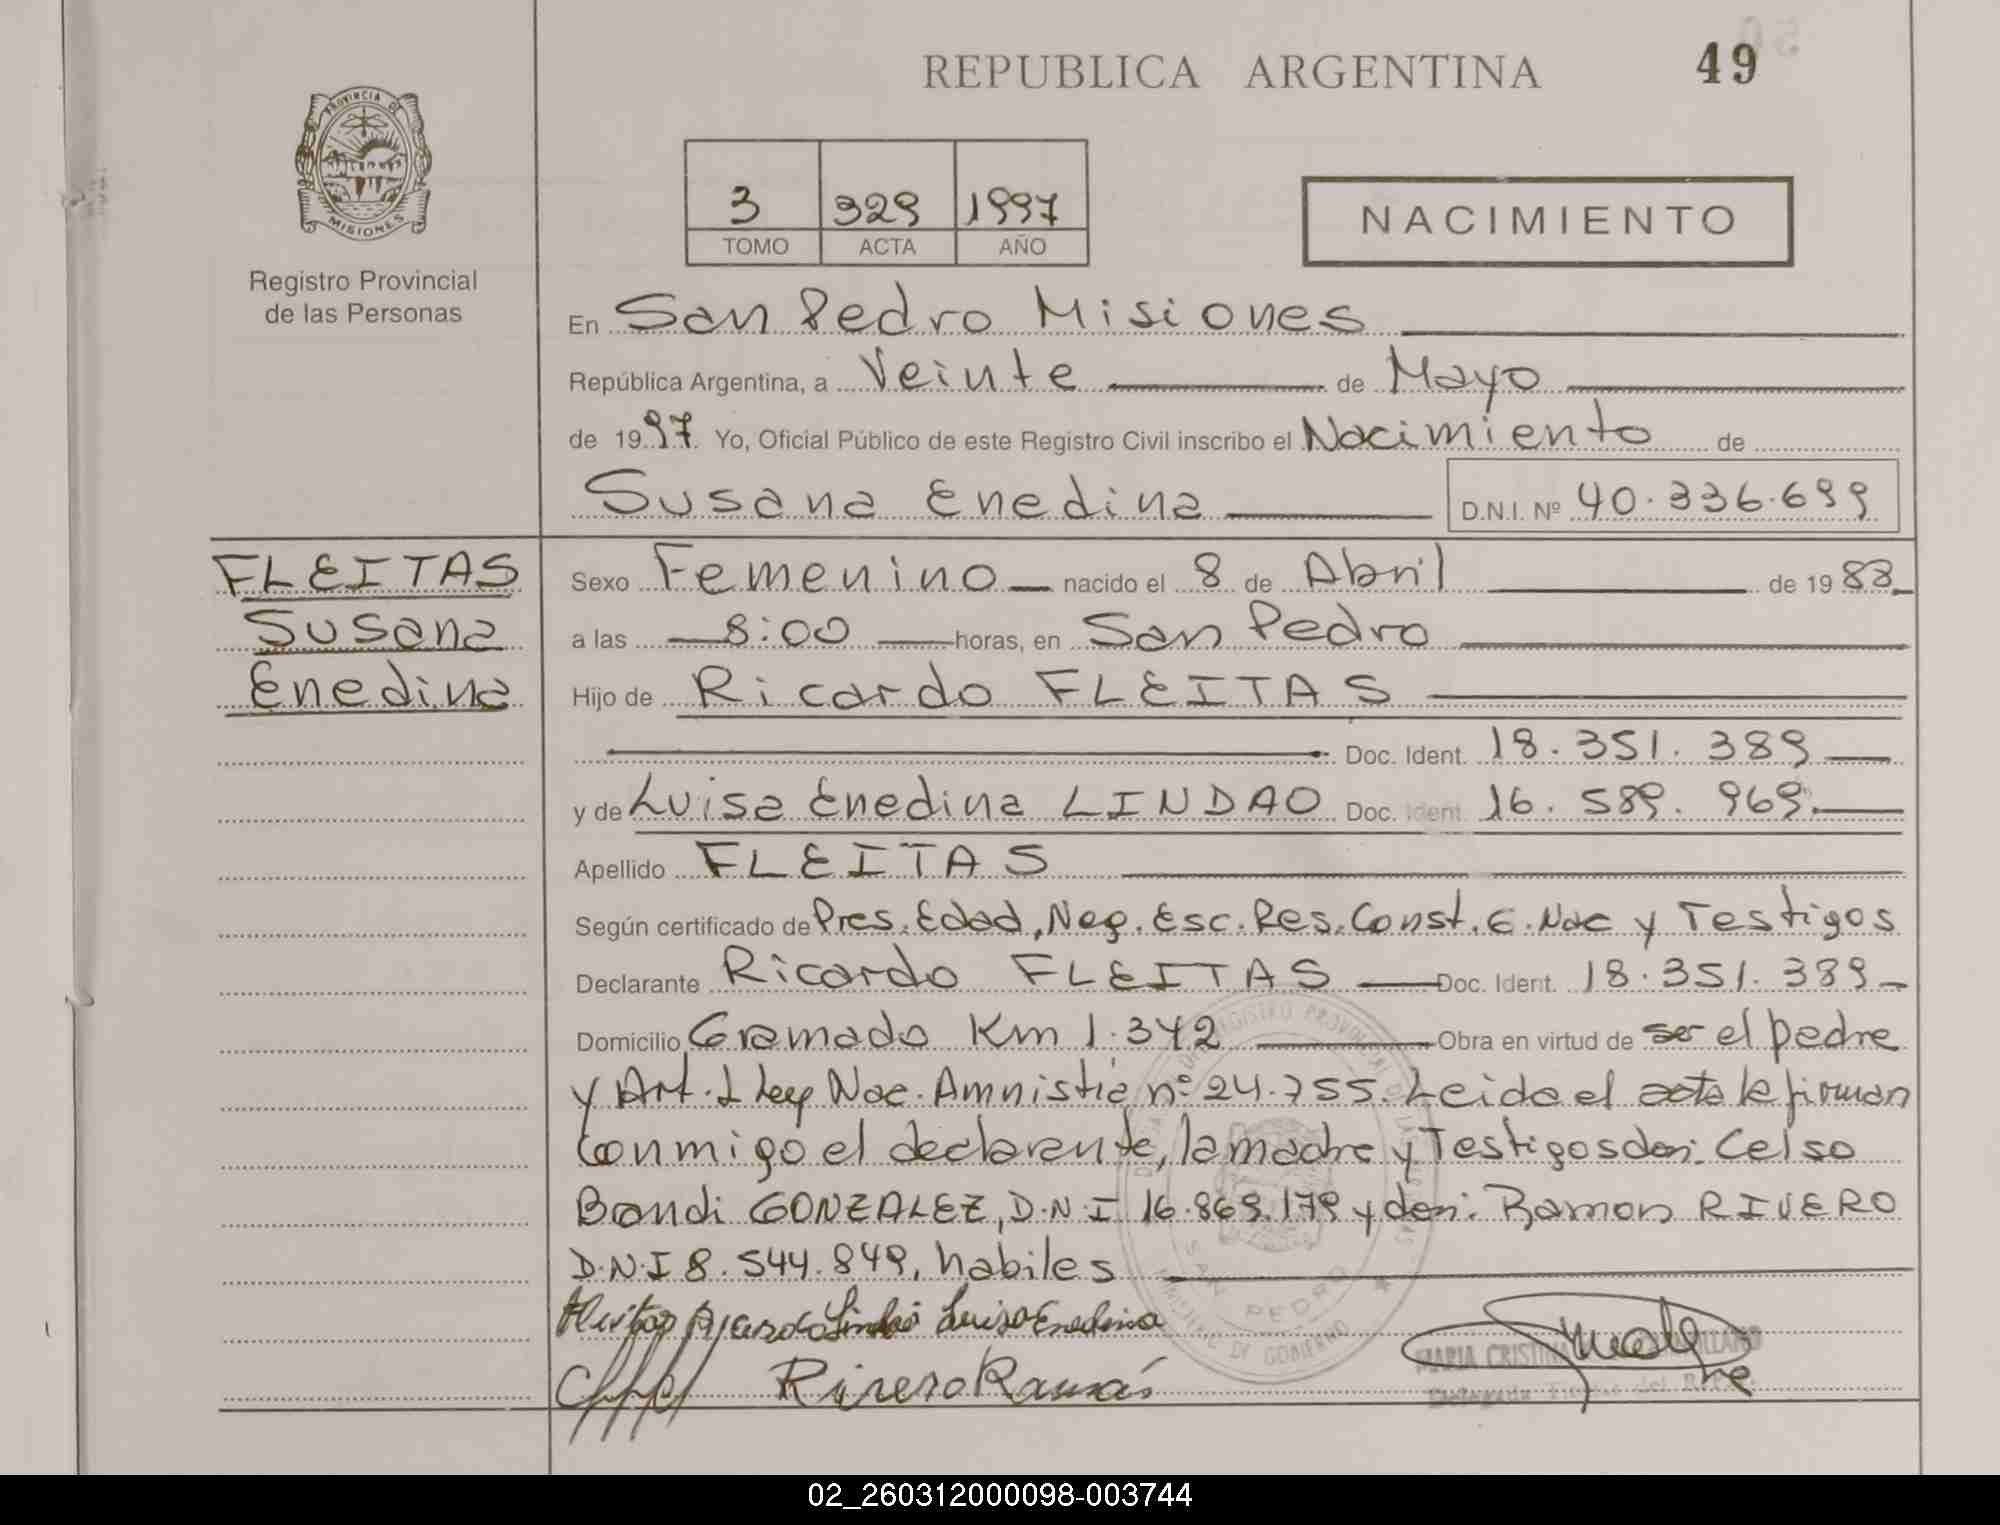 REPUBLICA ARGENTINA
49
PROVINCIA DE
MISIONES
Registro Provincial
de las Personas
3 329 1997
TOMO ACTA AÑO
NACIMIENTO
En San Pedro Misiones
República Argentina, a Veinte de Mayo
de 1997. Yo, Oficial Público de este Registro Civil inscribo el Nacimiento de
Susana Enedina D.N.I. Nº 40.336.699
FLEITAS
Susana
Enedina
Sexo Femenino nacido el 8 de Abril de 1988
a las 8:00 horas, en San Pedro
Hijo de Ricardo FLEITAS
Doc. Ident. 18.351.389
y de Luisa Enedina LINDAO Doc. Ident. 16.589.969.
Apellido FLEITAS
Según certificado de Pres. Edad, Neg. Esc. Res. Const. E. Nac y Testigos
Declarante Ricardo FLEITAS Doc. Ident. 18.351.389
Domicilio Gramado Km 1.342 Obra en virtud de ser el padre
y Art. 1 Ley Nac. Amnistia nº 24.755. Leida el acta la firman
conmigo el declarante, la madre y Testigos don: Celso
Bondi GONZALEZ, D.N.I 16.869.179 y don: Ramon RIVERO
D.N.I 8.544.849, habiles
Fleitas Ricardo Lindao Luisa Enedina
Rivero Ramón
SAN PEDRO
MARIA CRISTINA
02_260312000098-003744